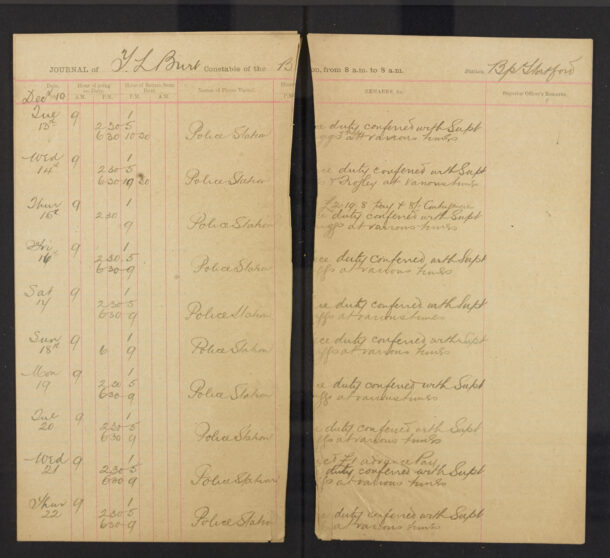 JOURNAL of Y. L. Burt Constable of the B on, from 8 a.m. to 8 a.m. Station, Bp Stortford
Date. Hour of going on Duty. Hour of Return from Beat. Names of Places Visited. Hours REMARKS, &c. Superior Officer's Remarks.
Decr 10 A.M. P.M. P.M. A.M. P.M.
Tue 9 1
13th 2 30 5 ce duty conferred with Supt
6 30 10 30 Police Station at various times
Wed 9 1
14th 2 30 5 ce duty conferred with Supt
6 30 10 30 Police Station at various times
Thur 9 1 £2.19.8 Pay &
15th 2 30 duty conferred with Supt
9 Police Station at various times
Fri 9 1
16 2 30 5 ce duty conferred with Supt
6 30 9 Police Station at various times
Sat 9 1
17 2 30 5 ce duty conferred with Supt
6 30 9 Police Station at various times
Sun 9 1 ce duty conferred with Supt
18th 6 9 Police Station at various times
Mon 9 1
19 2 30 5 ce duty conferred with Supt
6 30 9 Police Station at various times
Tue 9 1
20 2 30 5 duty conferred with Supt
6 30 9 Police Station at various times
Wed 9 1 £1 advance Pay
21 2 30 5 duty conferred with Supt
6 30 9 Police Station at various times
Thur 9 1
22 2 30 5 duty conferred with Supt
6 30 9 Police Station at various times